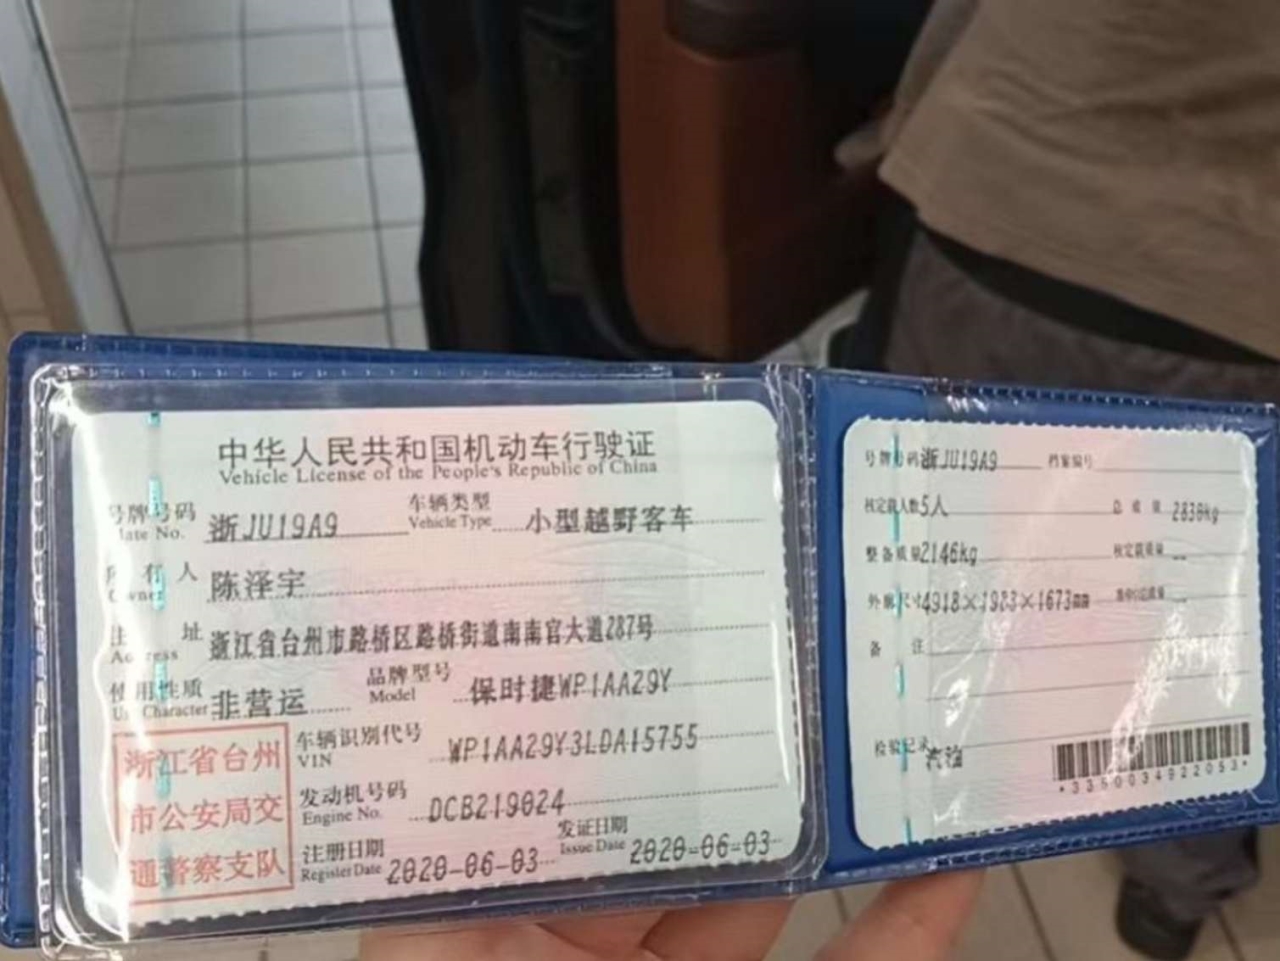 中华人民共和国机动车行驶证
Vehicle License of the People's Republic of China
号牌号码 浙JU19A9 车辆类型 小型越野客车
Plate No. Vehicle Type
所有人 陈泽宇
Owner
住址 浙江省台州市路桥区路桥街道南南官大道287号
Address
使用性质 非营运 品牌型号 保时捷WP1AA29Y
Use Character Model
浙江省台州
市公安局交
通警察支队
车辆识别代号 WP1AA29Y3LDA15755
VIN
发动机号码 DCB219024
Engine No.
注册日期 2020-06-03 发证日期 2020-06-03
Register Date Issue Date
号牌号码 浙JU19A9 档案编号
核定载人数 5人 总质量 2830kg
整备质量 2146kg 核定载质量 --
外廓尺寸 4918×1983×1673mm 准牵引总质量 --
备注
检验记录 汽油